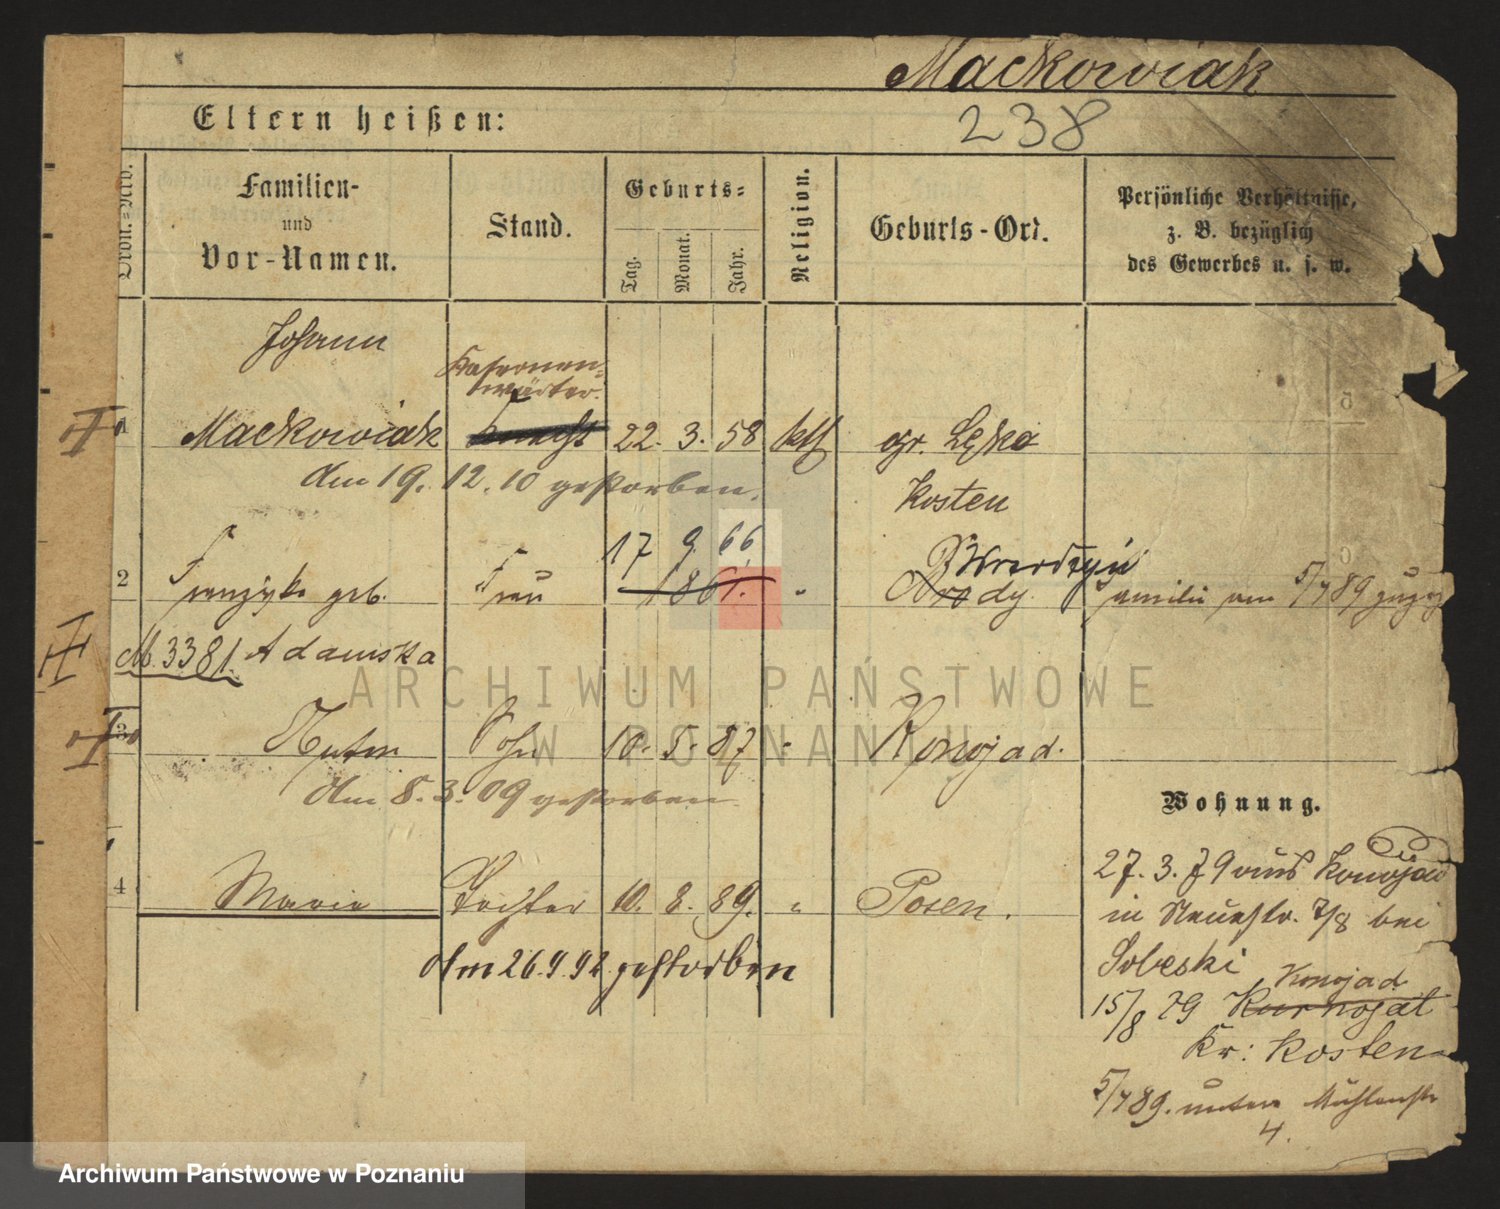 Mackowiak
238
Eltern heißen:
Ordn.=Nro.
Familien-
und
Vor-Namen.
Stand.
Geburts=
Tag.
Monat.
Jahr.
Religion.
Geburts-Ort.
Persönliche Verhältnisse,
z. B. bezüglich
des Gewerbes u. s. w.
Johann
Kasernen=
wärter.
1 Mackowiak Knecht 22. 3. 58 kth gr. Lęka
am 19. 12. 10 gestorben.
Kosten
17 9. 66
2 Franziska geb. Frau 1861. " Brody. Familie am 5/7 89
M. 3381. Adamska
3 Sohn 10. 5. 87 " Konojad.
am 8. 3. 09 gestorben
Wohnung.
4 Marie Tochter 10. 8. 89. " Posen.
27. 3. 79 aus Konojad
in Neuestr. 7/8 bei
Sobeski
am 26.9.92 gestorben
Konojad
15/8 79 Kurnojat
Kr: Kosten
5/7 89. untere Mühlenstr
4.
ARCHIWUM PAŃSTWOWE
W POZNANIU
Archiwum Państwowe w Poznaniu